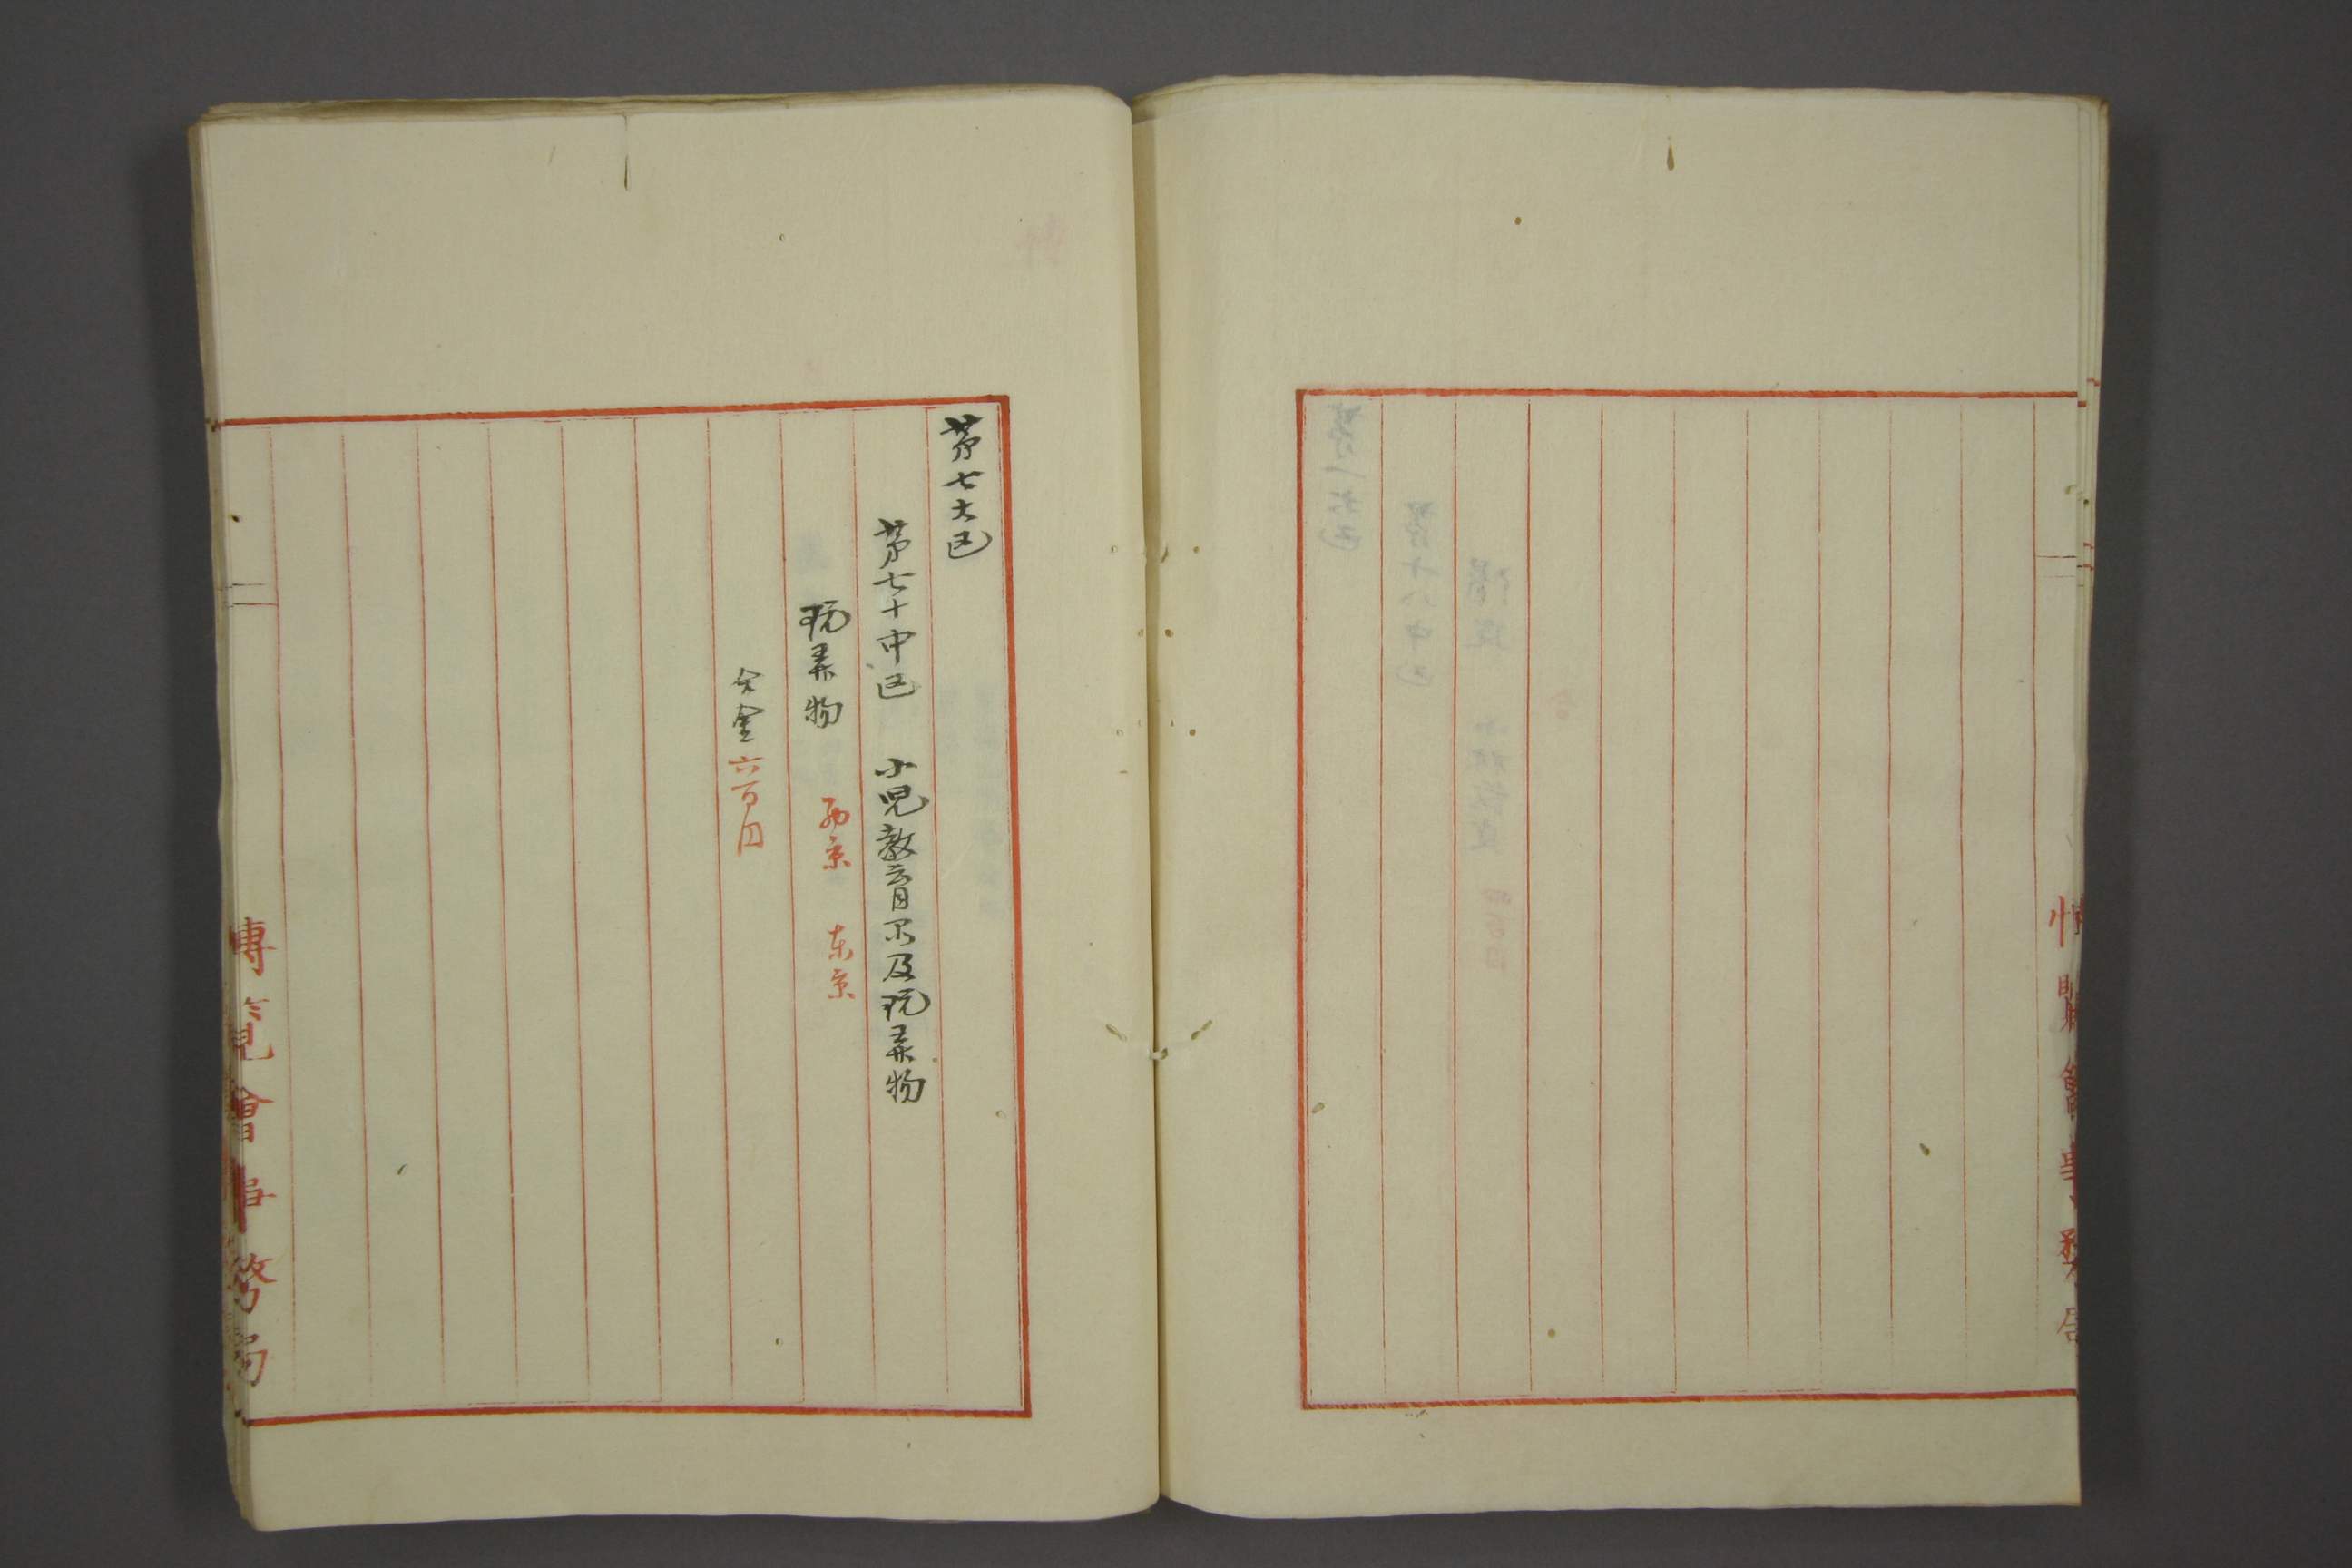 第七大区
第七十中区 小児教育品及玩弄物
玩弄物 西京 東京
代金六百円
博覧會事務局